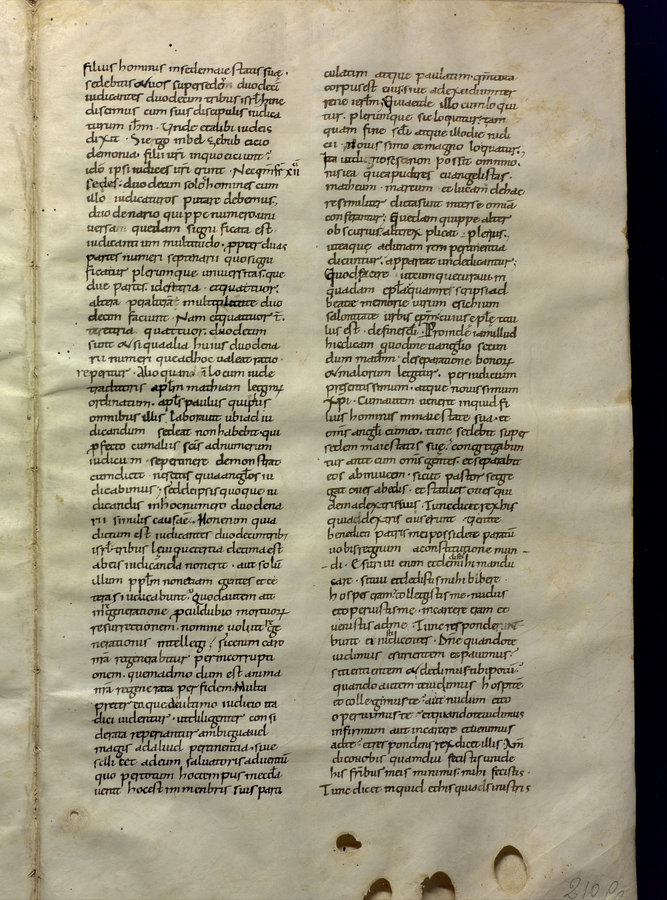 filius hominis insedemaiestatis suę.
sedebitis & uos sup sedes duodeci
iudicantes duodecim tribus isrl. hinc
discimus cum suis discipulis iudica
turum ihm. Unde & alibi iudeis
dixit. Si ego inbelzebub eicio
demonia. filii uri inquo eiciunt?
ideo ipsi iudices uri erunt. Nec qm sup xii
sedes. duodecim solos homines cum
illo iudicaturos putare debemus.
duodenario quippe numero uni
uersa quedam significata est
iudicantium multitudo. ppter duas
partes numeri septenarii quo signi
ficatur plerumque uniuersitas. que
due partes. idest tria & quattuor.
altera peralteram multiplicate duo
decim faciunt. Nam & quattuor t.
& ter quattuor. duodecim
sunt & siqua alia huius duodena
rii numeri que adhoc ualeat ratio
reperitur. Alioquin qm inlocum iude
traditoris aplm mathiam legimus
ordinatum. apls paulus qui plus
omnibus illis laborauit ubi ad iu
dicandum sedeat non habebit. qui
pfecto cum aliis scis adnumerum
iudicum. se pertinere demonstrat
cum dicit nescitis quia anglos iu
dicabimus; sed de ipsis quoque iu
dicandis inhoc numero duodena
rii similis causa e. Non enim quia
dictum est iudicantes duodecim trib;
isrl. tribus leui que tertia decima est
abeis iudicanda non erit. aut solu
illum pplm non etiam gentes & ce
teras iudicabunt. Quod autem ait
inregeneratione. pculdubio mortuorum
resurrectionem. nomine uoluit rege
nerationis intellegi. Sic enim caro
nra regenerabitur per incorrupti
onem. quemadmodum est anima
nra regenerata per fidem. Multa
preter eo que deultimo iudicio ita
dici uidentur. ut diligenter consi
derata reperiantur ambigua uel
magis ad aliud pertinentia. siue
scilic& adeum saluatoris aduentu
quo per totum hoc tempus ineccla
uenit hoc est inmembris suis parti
culatim atque paulatim. qm tota
corpus est eius. siue ad excidium ter
rene ierlm. Quia & de illo cum loqui
tur. plerumque sic loquitur. tam
quam fine scli atque illo die iudi
cii. nouissimo & magno loquatur.
Ita ut dinosci non possit omnino.
nisi ea quae apud tres euangelistas.
matheum. marcum. & lucam de hac
re similiter dicta sunt inter se omnia
conferantur. Quedam quippe alter
obscurius. alter explicat. plenius.
ut ea que ad unam rem pertinentia
dicuntur. appareat unde dicantur;
Quod facere utcumque curaui in
quadam epla quam rescripsi ad
beate memorie uirum esichium
salonitane urbis epm. cuius eple titu
lus est. define scli. Proinde iam illud
hic dicam quod in euanglio secun
dum matheum deseparatione bonorum
& malorum legitur. per iudicium
presentissimum. atque nouissimum
xpi. Cum autem uenerit inquid fi
lius hominis inmaiestate sua. et
oms angli cumeo. tunc sedebit super
sedem maiestatis suę. & congregabun
tur ante eum oms gentes. & separabit
eos abinuicem. sicut pastor segre
gat oues abedis. & statuet oues qui
dem adextris suis. Tunc dicet rex his
quia dextris eius erunt. Uenite
benedicti patris mei possidete paratu
uobis regnum aconstitutione mun
di. Esuriui enim & dedistis mihi mandu
care. sitiui & dedistis mihi bibere.
hospes eram & collegistis me. nudus
& cooperuistis me. in carcere eram et
uenistis adme. Tunc responde
bunt ei iusti dicentes. Dne quando te
uidimus esurientem & pauimus?
sitientem & dedimus tibi potu.
quando autem te uidimus hospite.
& collegimus te. aut nudum & co
operuimus te. et quando te uidimus
infirmum aut incarcere & uenimus
adte. & respondens rex dicet illis. Am
dico uobis quamdiu fecistis uni de
his fribus meis minimis. mihi fecistis.
Tunc dicet inquid & his qui a sinistris